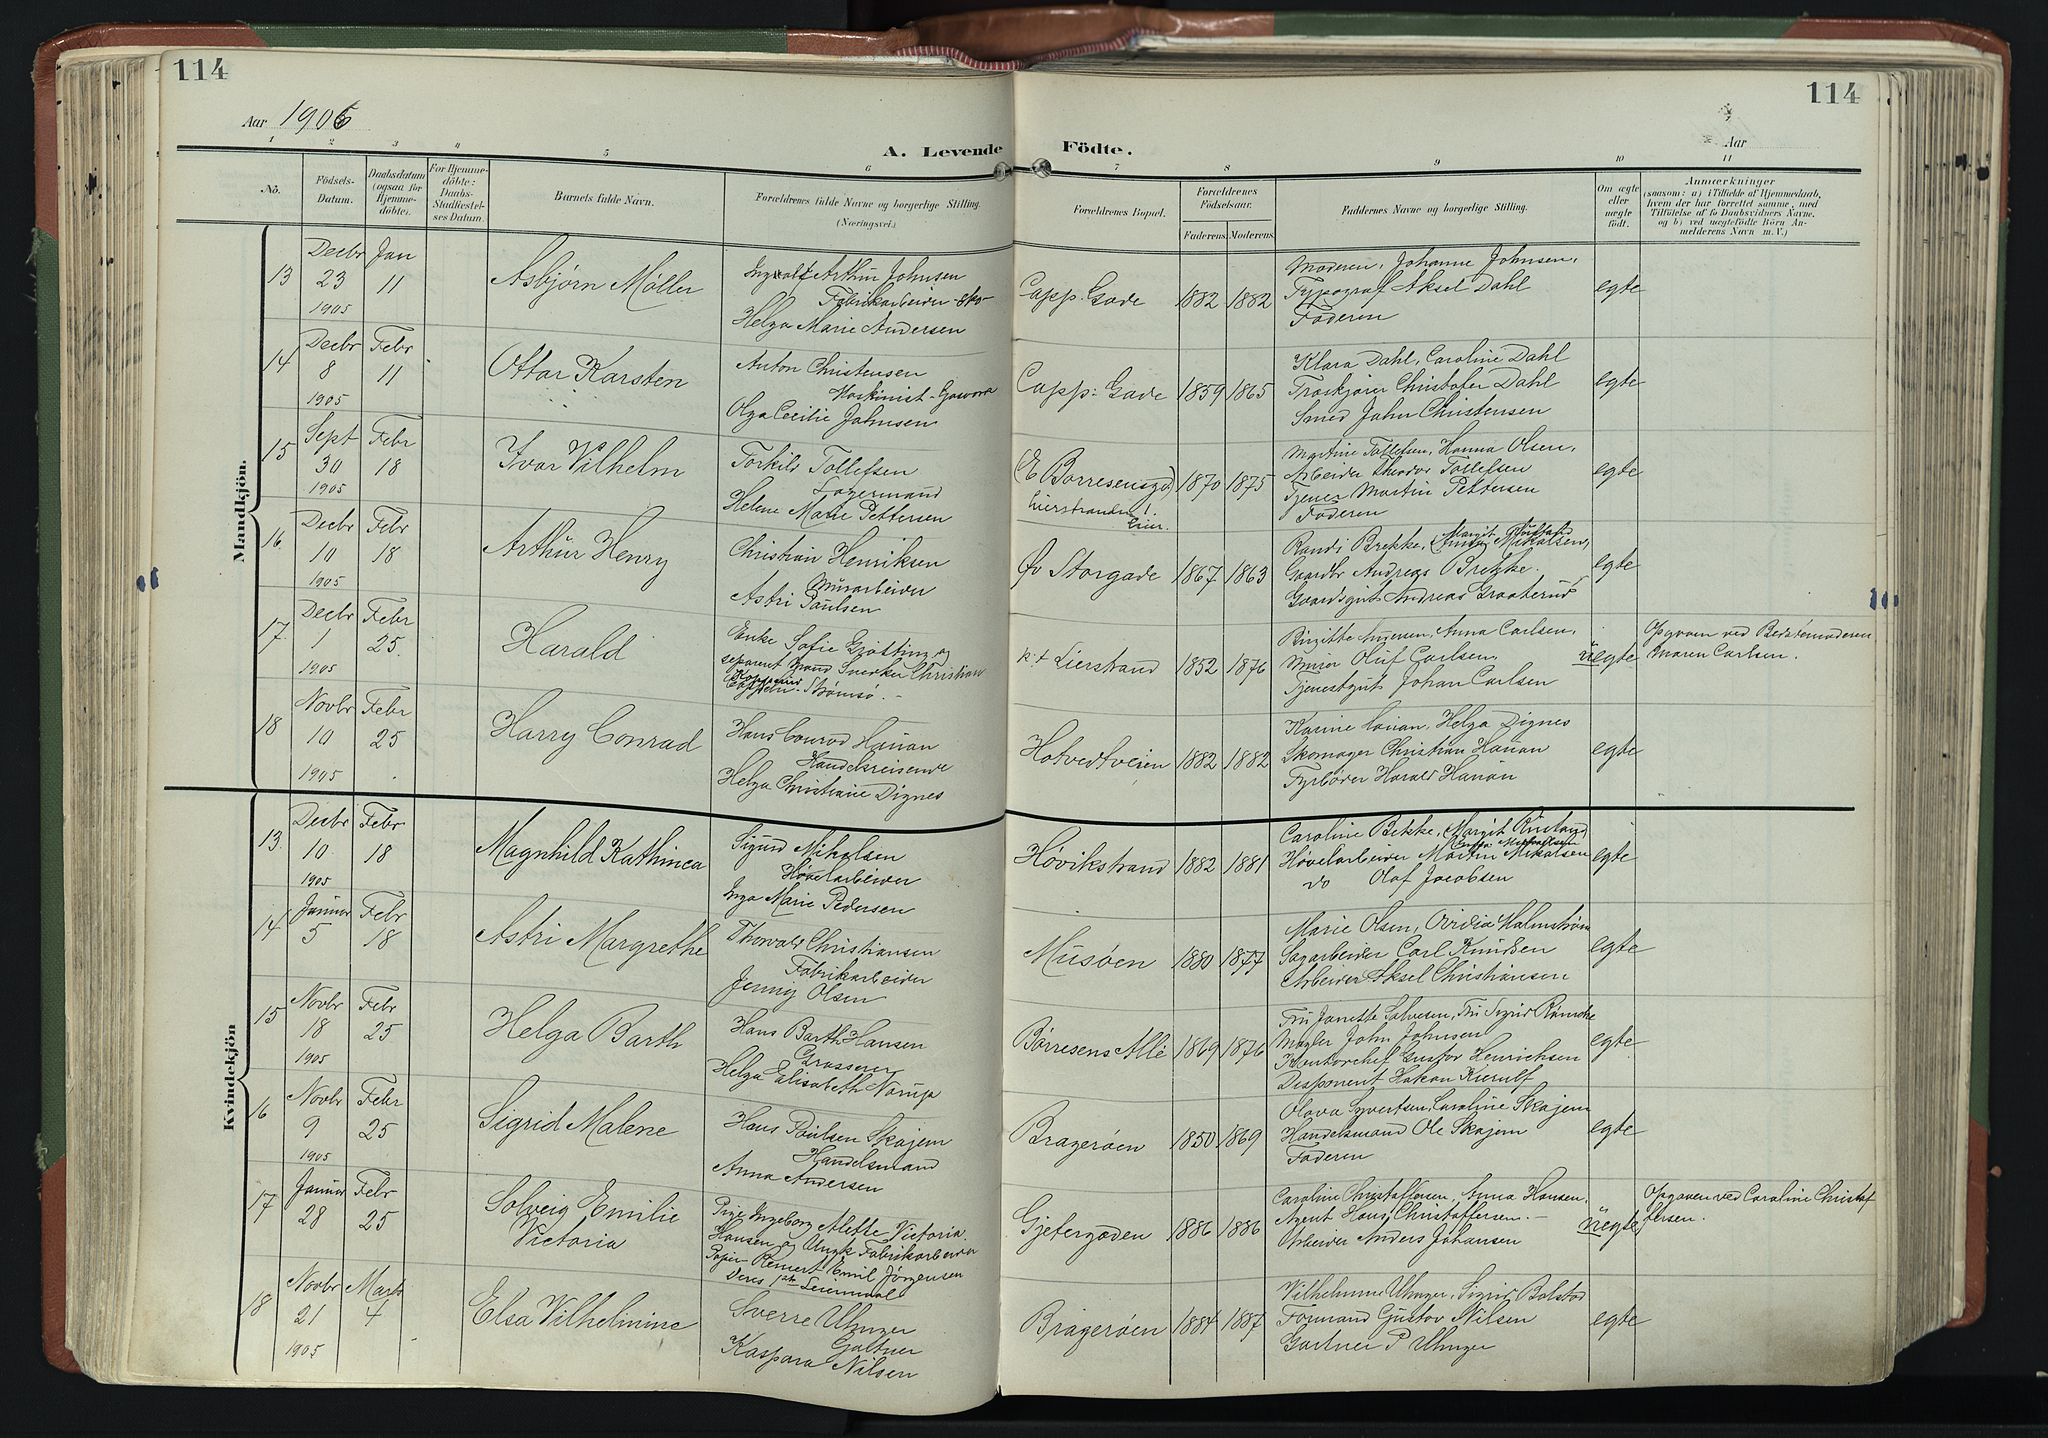 114
114
Aar 1906
Aar
A. Levende Födte.
1 2 3 4 5 6 7 8 9 10 11
No.
Födsels-Datum.
Daabsdatum (ogsaa for Hjemme-döbte).
For Hjemme-döbte: Daabs-Stadfæstel-ses Datum.
Barnets fulde Navn.
Forældrenes fulde Navne og borgerlige Stilling.
(Næringsvei.)
Forældrenes Bopæl.
Forældrenes Födselsaar.
Faderens. Moderens.
Faddernes Navne og borgerlige Stilling.
Om ægte eller uægte födt.
Anmærkninger
(saasom: a) i Tilfælde af Hjemmedaab, hvem der har forrettet samme, med Tilföielse af to Daabsvidners Navne, og b) ved uægtefödte Börn An-melderens Navn m. V.)
Mandkjön.
13 Decbr 23 1905 Jan 11 Asbjørn Møller
Arthur Johnsen
Fabrikarbeider
Helga Marie Andersen
Capp. Gade 1882 1882
Moderen, Johanne Johnsen,
Typograf Aksel Dahl
Faderen
egte
14 Decbr 8 1905 Febr 11 Ottar Karsten
Anton Christensen
Maskinist
Olga Cecilie Johnsen
Capp. Gade 1859 1865
Klara Dahl, Caroline Dahl
Træskjærer Christofer Dahl
Smed John Christensen
egte
15 Sept 30 1905 Febr 18 Ivar Vilhelm
Torkild Tollefsen
Lagermand
Helene Marie Pettersen
Lierstranden
1870 1875
Martine Tollefsen, Hanna Olsen,
Arbeider Theodor Tollefsen
Tjener Martin Pettersen
Faderen
egte
16 Decbr 10 1905 Febr 18 Arthur Henry
Christian Henriksen
Murarbeider
Astri Paulsen
Øv Storgade 1867 1863
Randi Brekke, Mikalsen,
Gaardbr Andreas Brekke.
Gaardsgut Andreas
egte
17 Decbr 1 1905 Febr 25. Harald
Enke Sofie Grøsting og
separert Mand Snedker Christian
Strømsø.
p. t Lierstrand 1852 1876
Birgitte Iversen, Anna Carlsen,
Murer Oluf Carlsen
Tjenestgut Johan Carlsen
uegte
Opgaven ved Bedstemoderen
Maren Carlsen.
18 Novbr 10 1905 Febr 25 Harry Conrad
Hans Conrad Hauan
Handelsreisende
Helga Christiane Dignes
Hotvedtveien 1882 1882
Karine Hauan, Helga Dignes
Skomager Christian Hauan
Fyrbøder Harald Hauan
egte
Kvindekjön
13 Decbr 10 1905 Febr 18 Magnhild Kathinca
Sigurd Mikalsen
Høvelarbeider
Inga Marie Pedersen
Høvikstrand 1882 1881
Caroline Bekke, Margit Rustand
Høvelarbeider Martin Mikalsen
do Olaf Jacobsen
egte
14 Januar 5 Febr 18 Astri Margrethe
Thorvald Christiansen
Fabrikarbeider
Jenny Olsen
Musøen 1880 1877
Marie Olsen, Ovidia Malmstrøm
Sagarbeider Carl Knudsen
Arbeider Aksel Christiansen
egte
15 Novbr 18 1905 Febr 25 Helga Barth
Hans Barth Hansen
Grosserer
Helga Elisabeth Narup
Børresens Allé 1869 1876
Fru Janette Salvesen, Fru Sigrid
Mægler John Johnsen
Kontorchef Gustav Henrichsen
Disponent Hakon Kierulf
egte
16 Novbr 9 1905 Febr 25 Sigrid Malene
Hans Paulsen Skajem
Handelsmand
Anna Andersen
Bragerøen 1850 1869
Olava Syvertsen, Caroline Skajem
Handelsmand Ole Skajem
Faderen
egte
17 Januar 28 Febr 25 Solveig Emilie
Victoria
Pige Ingeborg Alette Victoria
Hansen og Ungk Fabrikarbeider
Emil Jørgensen
Gjetergaden 1886 1886
Caroline Christoffersen, Anna Hansen,
Agent Hans Christoffersen.
Arbeider Anders Johansen
uegte
Opgaven ved Caroline Christof
fersen.
18 Novbr 21 1905 Marts 4 Elsa Vilhelmine
Sverre Unger
Gartner
Kaspara Nilsen
Bragerøen 1884 1887
Vilhelmine Unger, Sigrid Bolstad
Formand Gustav Nilsen
Gartner P Unger
egte